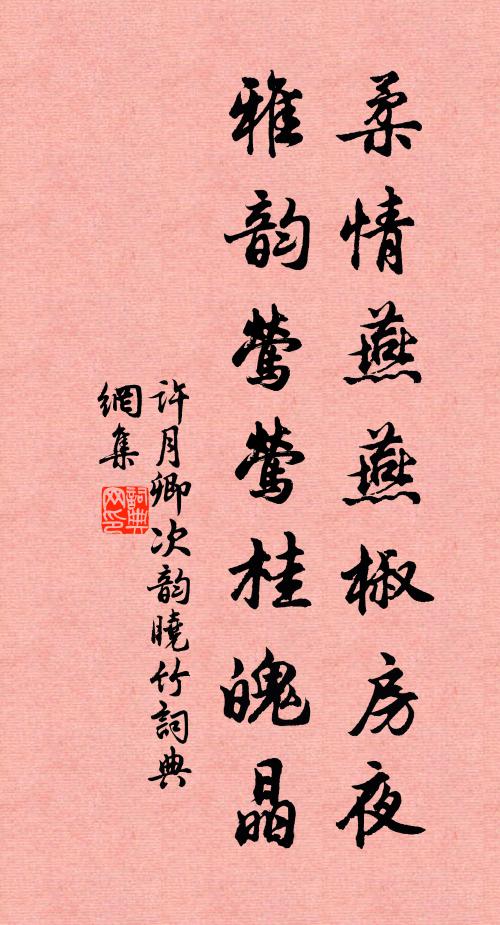 柔情燕燕椒房夜
雅韵莺莺桂魄晶
许月卿次韵曉竹詞典
網集
詞典
网印